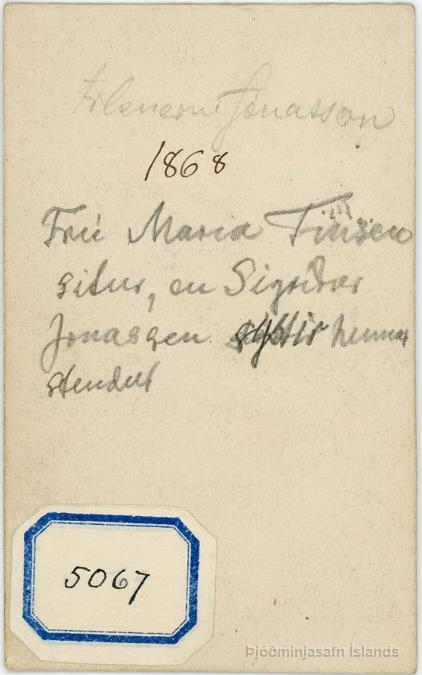 Jónasson
1868
Frú Maria Finsen
situr, en Sigridur
Jonassen systir hennar
stendur
5067
Þjóðminjasafn Íslands